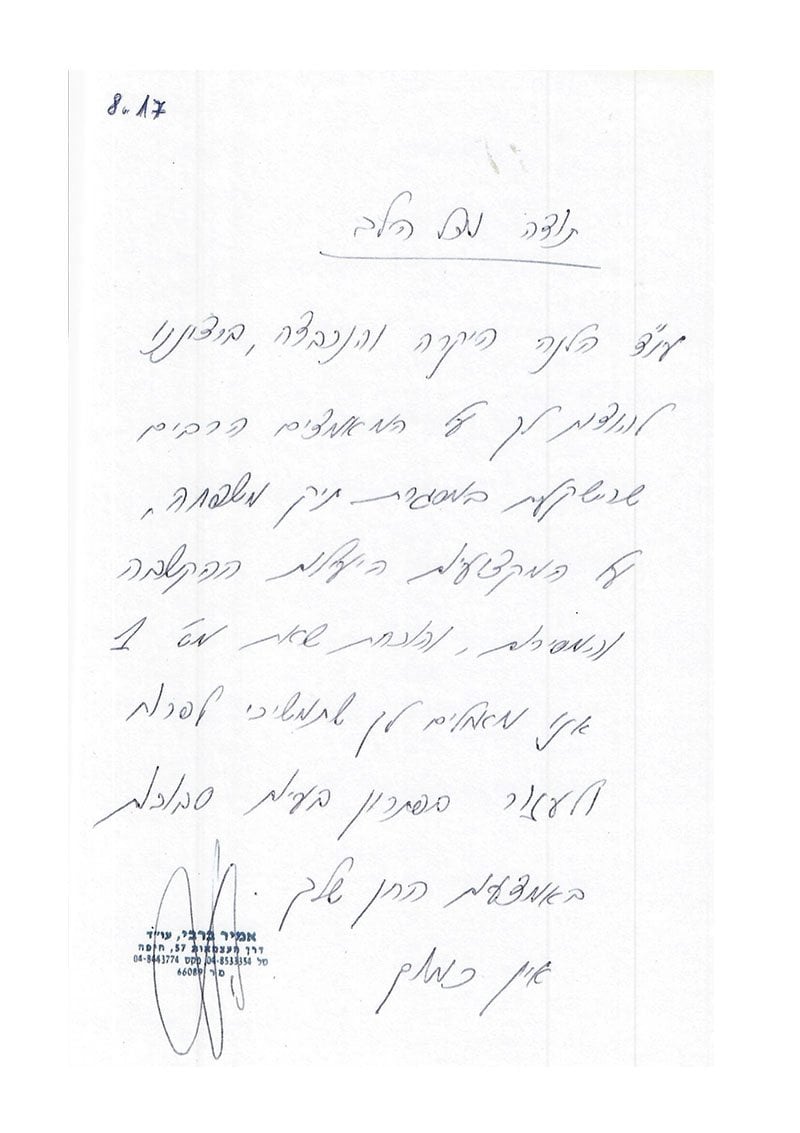 8.17
תודה מכל הלב
עו"ד הלנה היקרה והנכבדה, ברצוננו
להודות לך על המאמצים הרבים
שהשקעת במסגרת תיק משפחה,
על המקצועיות היעילות ההקשבה
והמסירות, והוכחת שאת מס' 1
אנו מאחלים לך שתמשיכי לפרוח
ולעזור בפתרון בעיות סבוכות
באמצעות החן שלך
אין כמותך
אמיר ברבי, עו"ד
דרך העצמאות 57, חיפה
טל 04-8533354 פקס 04-8443774
מ.ר 66089